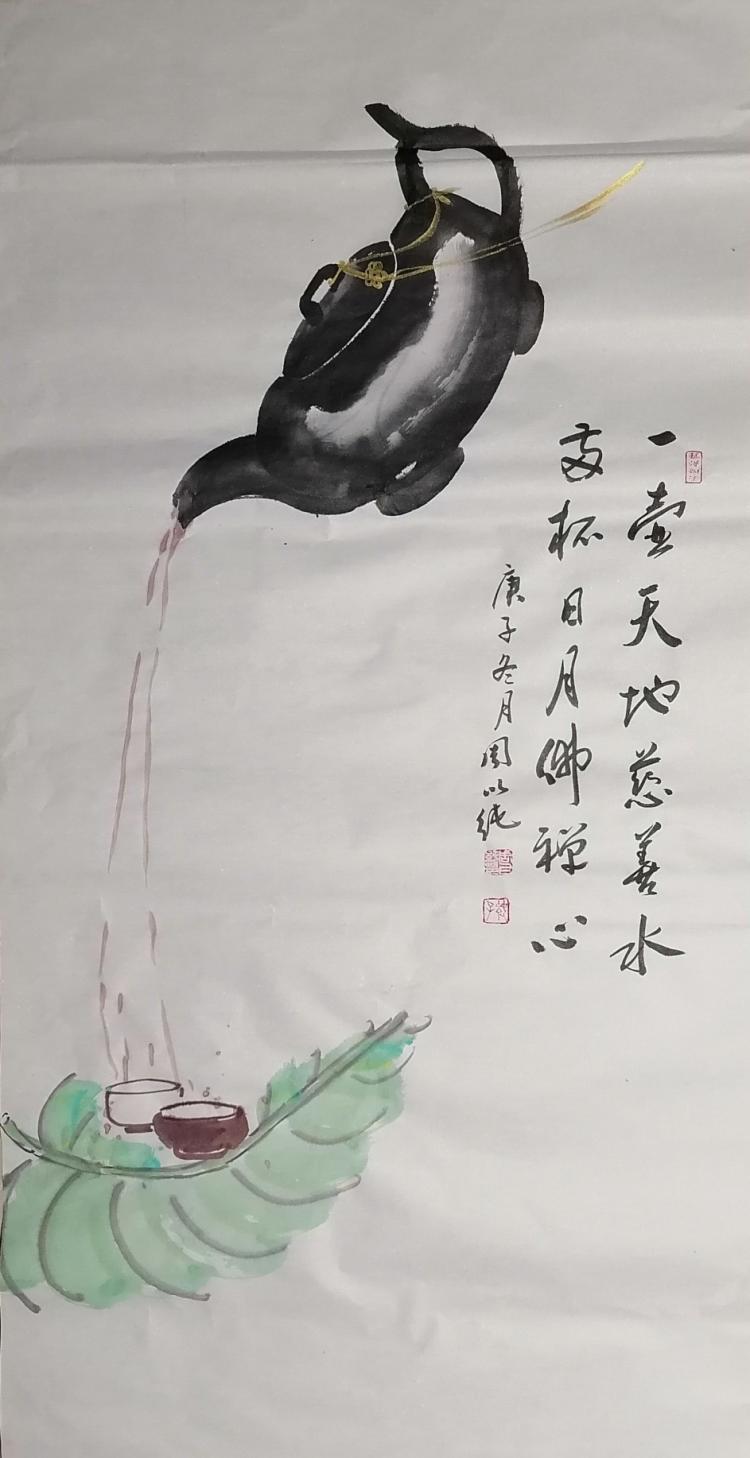 一壶天地慈善水
两杯日月佛禅心
庚子冬月周以纯